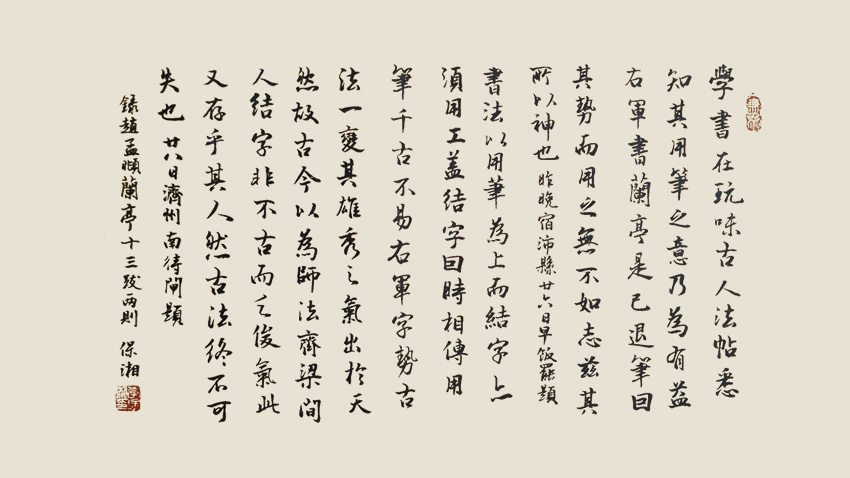 學書在玩味古人法帖悉
知其用筆之意乃為有益
右軍書蘭亭是已退筆因
其勢而用之無不如志茲其
所以神也 昨晚宿沛縣廿六日早飯罷題
書法以用筆為上而結字亦
須用工蓋結字因時相傳用
筆千古不易右軍字勢古
法一變其雄秀之氣出於天
然故古今以為師法齊梁間
人結字非不古而乏俊氣此
又存乎其人然古法終不可
失也 廿八日濟州南待閘題
錄趙孟頫蘭亭十三跋兩則 保湘